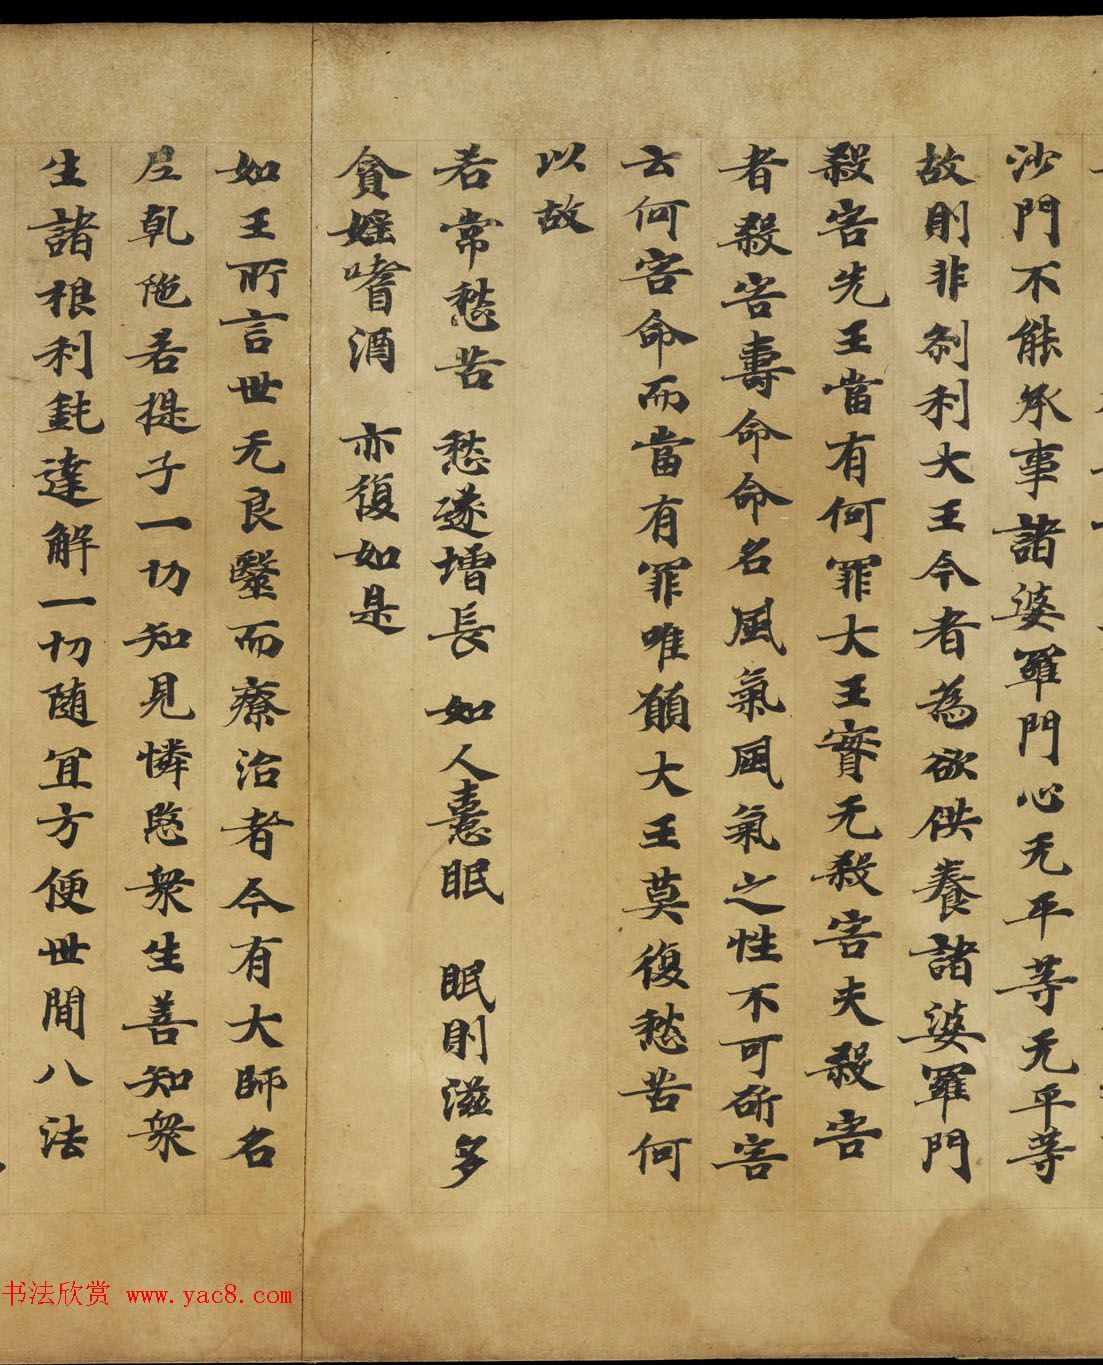 沙門不能承事諸婆羅門心无平等无平等
故則非刹利大王今者為欲供養諸婆羅門
殺害先王當有何罪大王實无殺害夫殺害
者殺害壽命命名風氣風氣之性不可斫害
云何害命而當有罪唯願大王莫復愁苦何
以故
若常愁苦 愁遂增長 如人憙眠 眠則滋多
貪婬嗜酒 亦復如是
如王所言世无良毉而療治者今有大師名
尼乹陁若提子一切知見憐愍衆生善知衆
生諸根利鈍達解一切随冝方便世間八法
书法欣赏 www.yac8.com